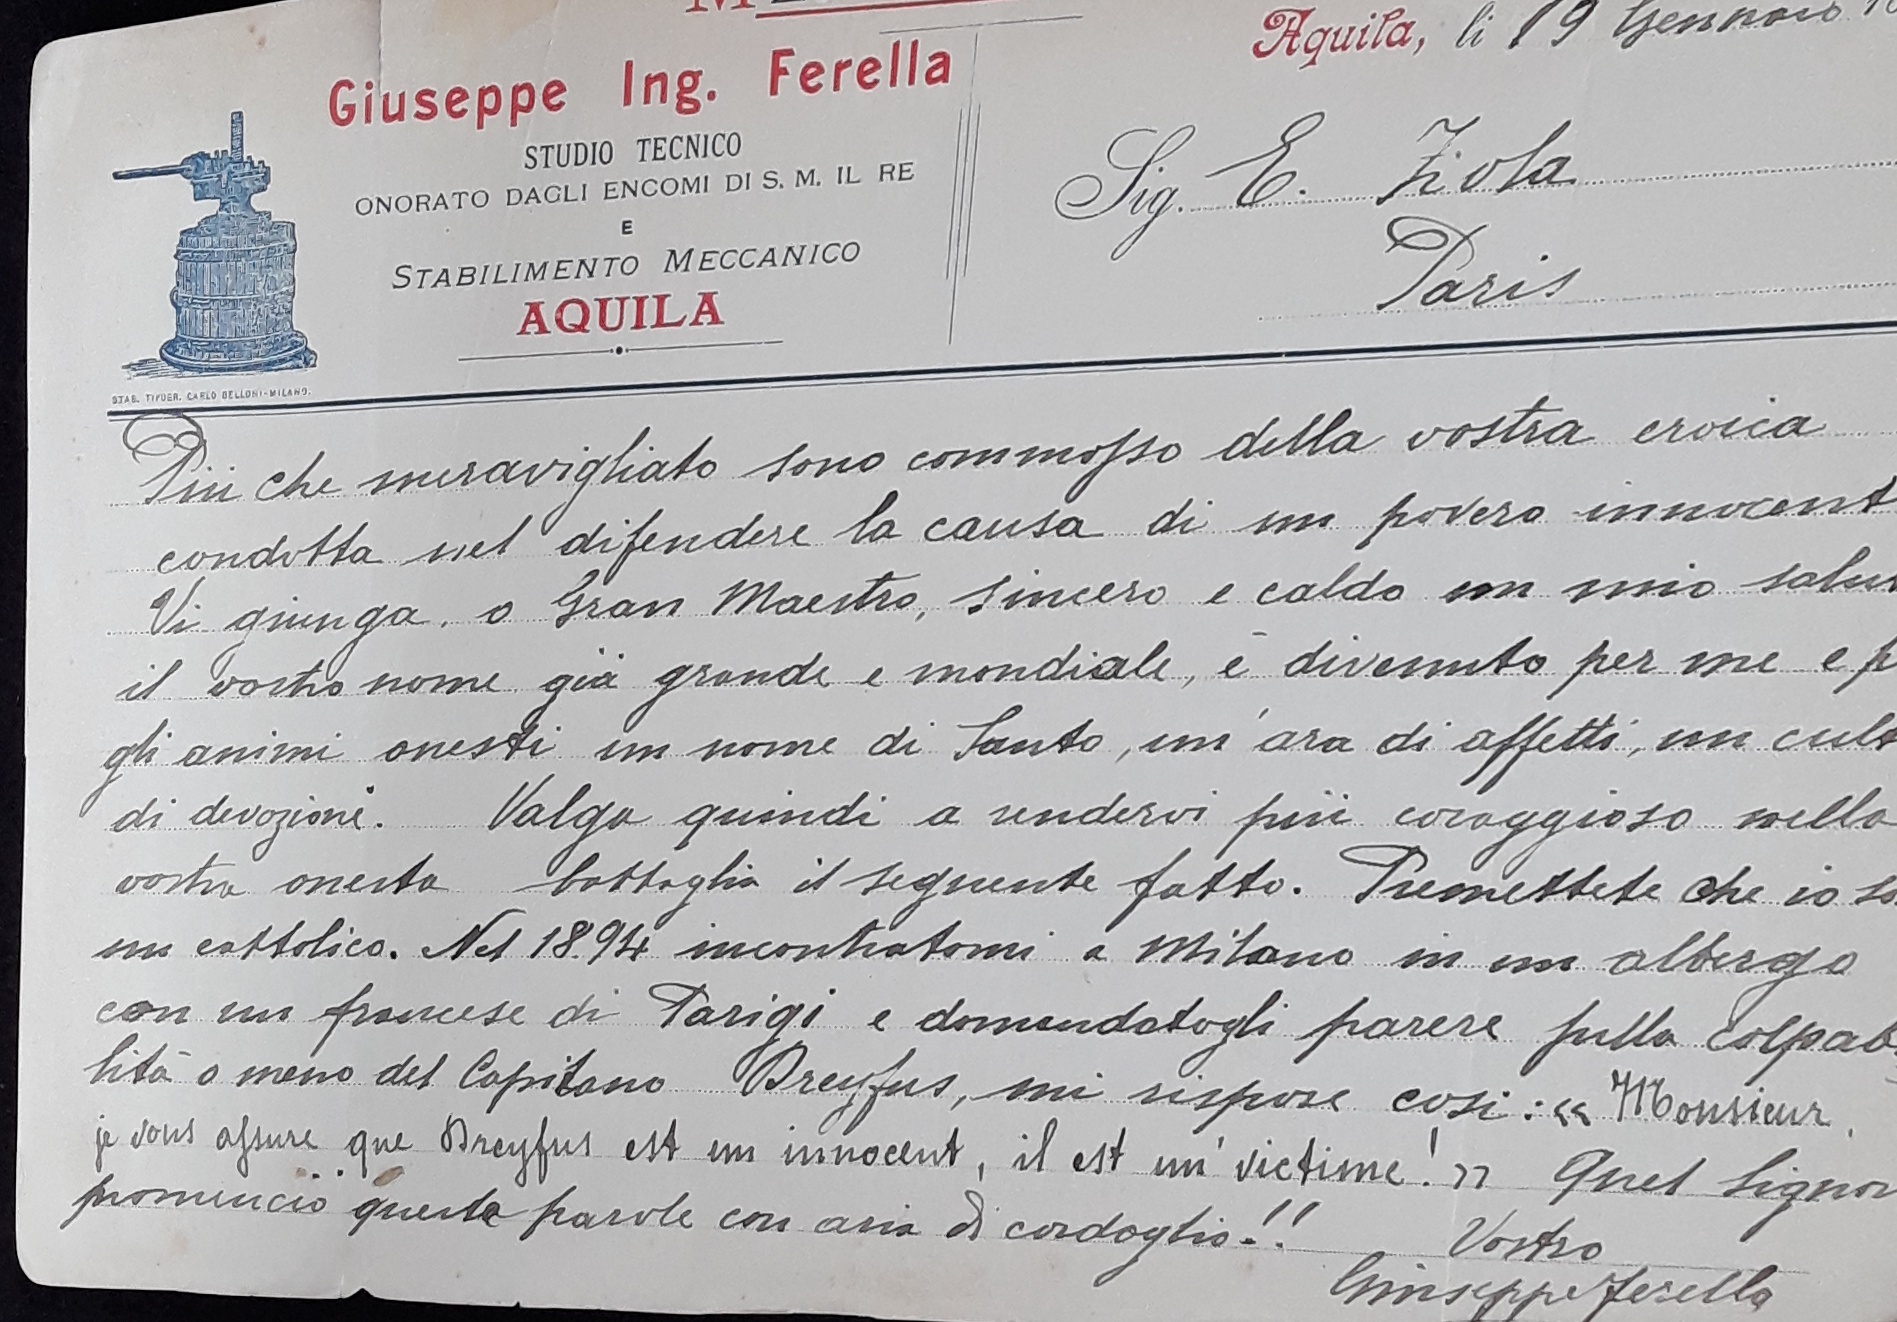 Aquila, li 19 Gennaio
Giuseppe Ing. Ferella
STUDIO TECNICO
ONORATO DAGLI ENCOMI DI S. M. IL RE
E
STABILIMENTO MECCANICO
AQUILA
STAB. TIPOGR. CARLO BELLONI-MILANO.
Sig. E. Zola
Paris
Più che meravigliato sono commosso della vostra eroica
condotta nel difendere la causa di un povero innocent
Vi giunga, o Gran Maestro, sincero e caldo un mio salut
il vostro nome già grande e mondiale, è divenuto per me e p
gli animi onesti un nome di Santo, un'ara di affetti, un cult
di devozione. Valga quindi a rendervi più coraggioso nella
vostra onesta battaglia il seguente fatto. Premettete che io so
un cattolico. Nel 1894 incontratomi a Milano in un albergo
con un francese di Parigi e domandatogli parere sulla colpabi
lità o meno del Capitano Dreyfus, mi rispose così: « Monsieur,
je vous assure que Dreyfus est un innocent, il est un' victime! » Quel Signor
pronunciò queste parole con aria di cordoglio!!
Vostro
Giuseppe Ferella